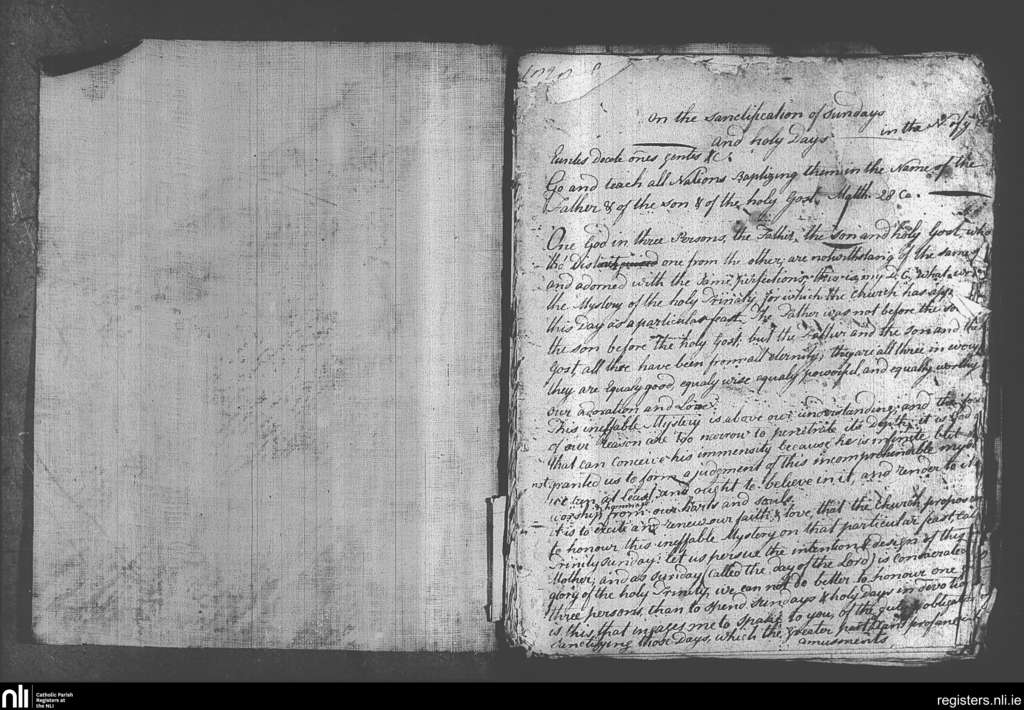 on the sanctification of sundays
and holy Days in the N. of
Euntes docete omes gentes &c.
Go and teach all Nations Baptizing them in the Name of the
Father & of the son & of the holy Gost. Matth. 28 Ca.
One God in three Persons, the Father, the son and holy Gost, who
tho' distinct one from the other, are notwithstang of the same
and adorned with the same perfections this is my D. C. what
the Mystery of the holy Trinity, for which the church has app
this Day as a particular feast. The Father was not before the so
the son before the holy Gost; but the Father and the son and the
Gost all thre have been from all eternity; they are all three in
they are Equaly good, equaly wise equaly powerful, and equally worthy
our adoration and Love.
This ineffable Mystery is above our understanding; and the
of our reason are too narrow to penitrate its Depth; it is God
that can conceive his immensity because he is infinite, but
not granted us to form a judgment of this incomprehensible mys
we can at least and ought to believe in it, and render to it
worship & hommage from our harts and souls.
it is to excite and renew our faith & love, that the church proposes
to honour this ineffable Mystery on that particular feast
Trinity sunday: let us persue the intention & design of this
Mother; and as sunday (called the day of the Lord) is consecrated
glory of the holy Trinity, we can not do better to honour one
three persons, than to spend sundays & holy days in devotion
is this that ingages me to speak to you, of the obligation
sanctifying those Days, which the greater part profane
amusments
nli
Catholic Parish
Registers at
the NLI
registers.nli.ie